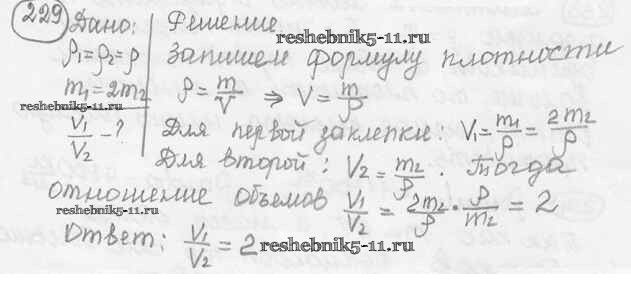 229 Дано: Решение.
reshebnik5-11.ru
ρ₁=ρ₂=ρ Запишем формулу плотности
m₁=2m₂ ρ = m/V ⇒ V = m/ρ
reshebnik5-11.ru
V₁/V₂ - ? Для первой заклепки: V₁ = m₁/ρ = 2m₂/ρ
Для второй: V₂ = m₂/ρ. Тогда
отношение объемов V₁/V₂ = 2m₂/ρ · ρ/m₂ = 2
reshebnik5-11.ru
Ответ: V₁/V₂ = 2
reshebnik5-11.ru